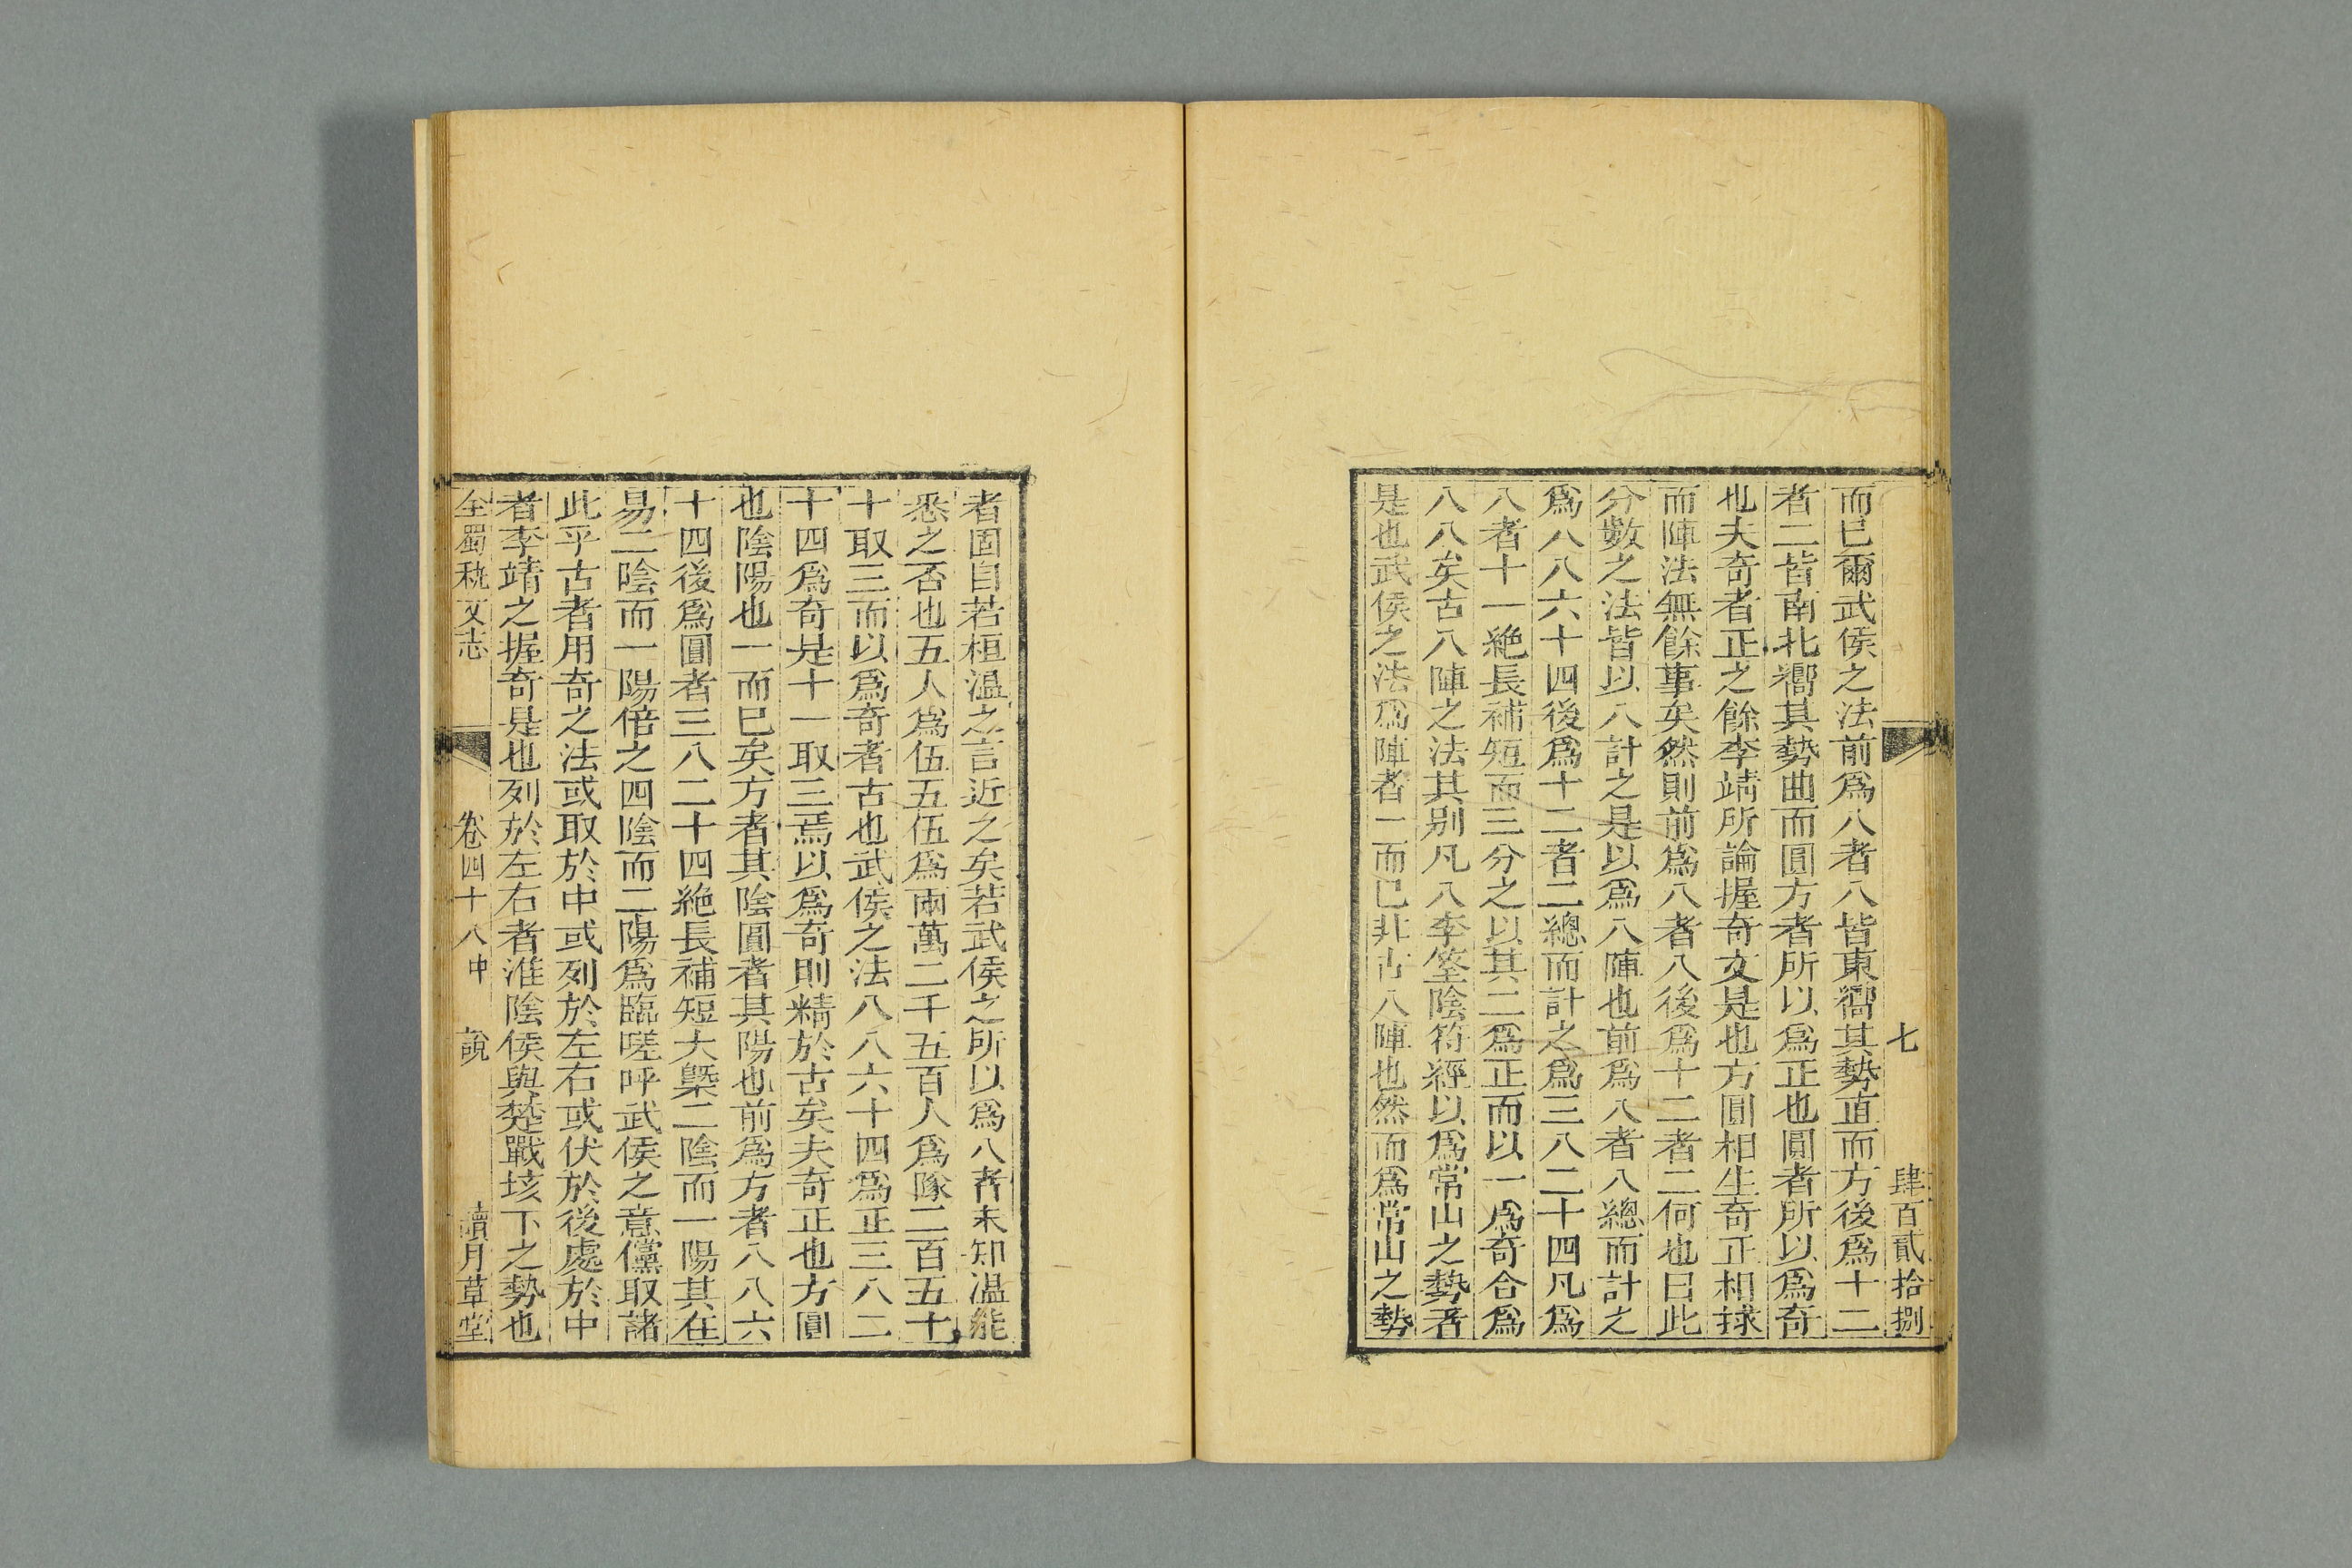 七 肆百貳拾捌
而已爾武侯之法前爲八者八皆東嚮其勢直而方後爲十二
者二皆南北嚮其勢曲而圓方者所以爲正也圓者所以爲奇
也夫奇者正之餘李靖所論握奇文是也方圓相生奇正相捄
而陣法無餘事矣然則前爲八者八後爲十二者二何也曰此
分數之法皆以八計之是以爲八陣也前爲八者八總而計之
爲八八六十四後爲十二者二總而計之爲三八二十四凡爲
八者十一絶長補短而三分之以其二爲正而以一爲奇合爲
八八矣古八陣之法其别凡八李筌陰符經以爲常山之勢者
是也武侯之法爲陣者二而已非古八陣也然而爲常山之勢
者固自若桓溫之言近之矣若武侯之所以爲八者未知溫能
悉之否也五人爲伍五伍爲兩萬二千五百人爲隊二百五十
十取三而以爲奇者古也武侯之法八八六十四爲正三八二
十四爲奇是十一取三焉以爲奇則精於古矣夫奇正也方圓
也陰陽也一而已矣方者其陰圓者其陽也前爲方者八八六
十四後爲圓者三八二十四絶長補短大槩二陰而一陽其在
易二陰而一陽倍之四陰而二陽爲臨嗟呼武侯之意儻取諸
此乎古者用奇之法或取於中或列於左右或伏於後處於中
者李靖之握奇是也列於左右者淮陰侯與楚戰垓下之勢也
全蜀秇文志 卷四十八中 說 讀月草堂